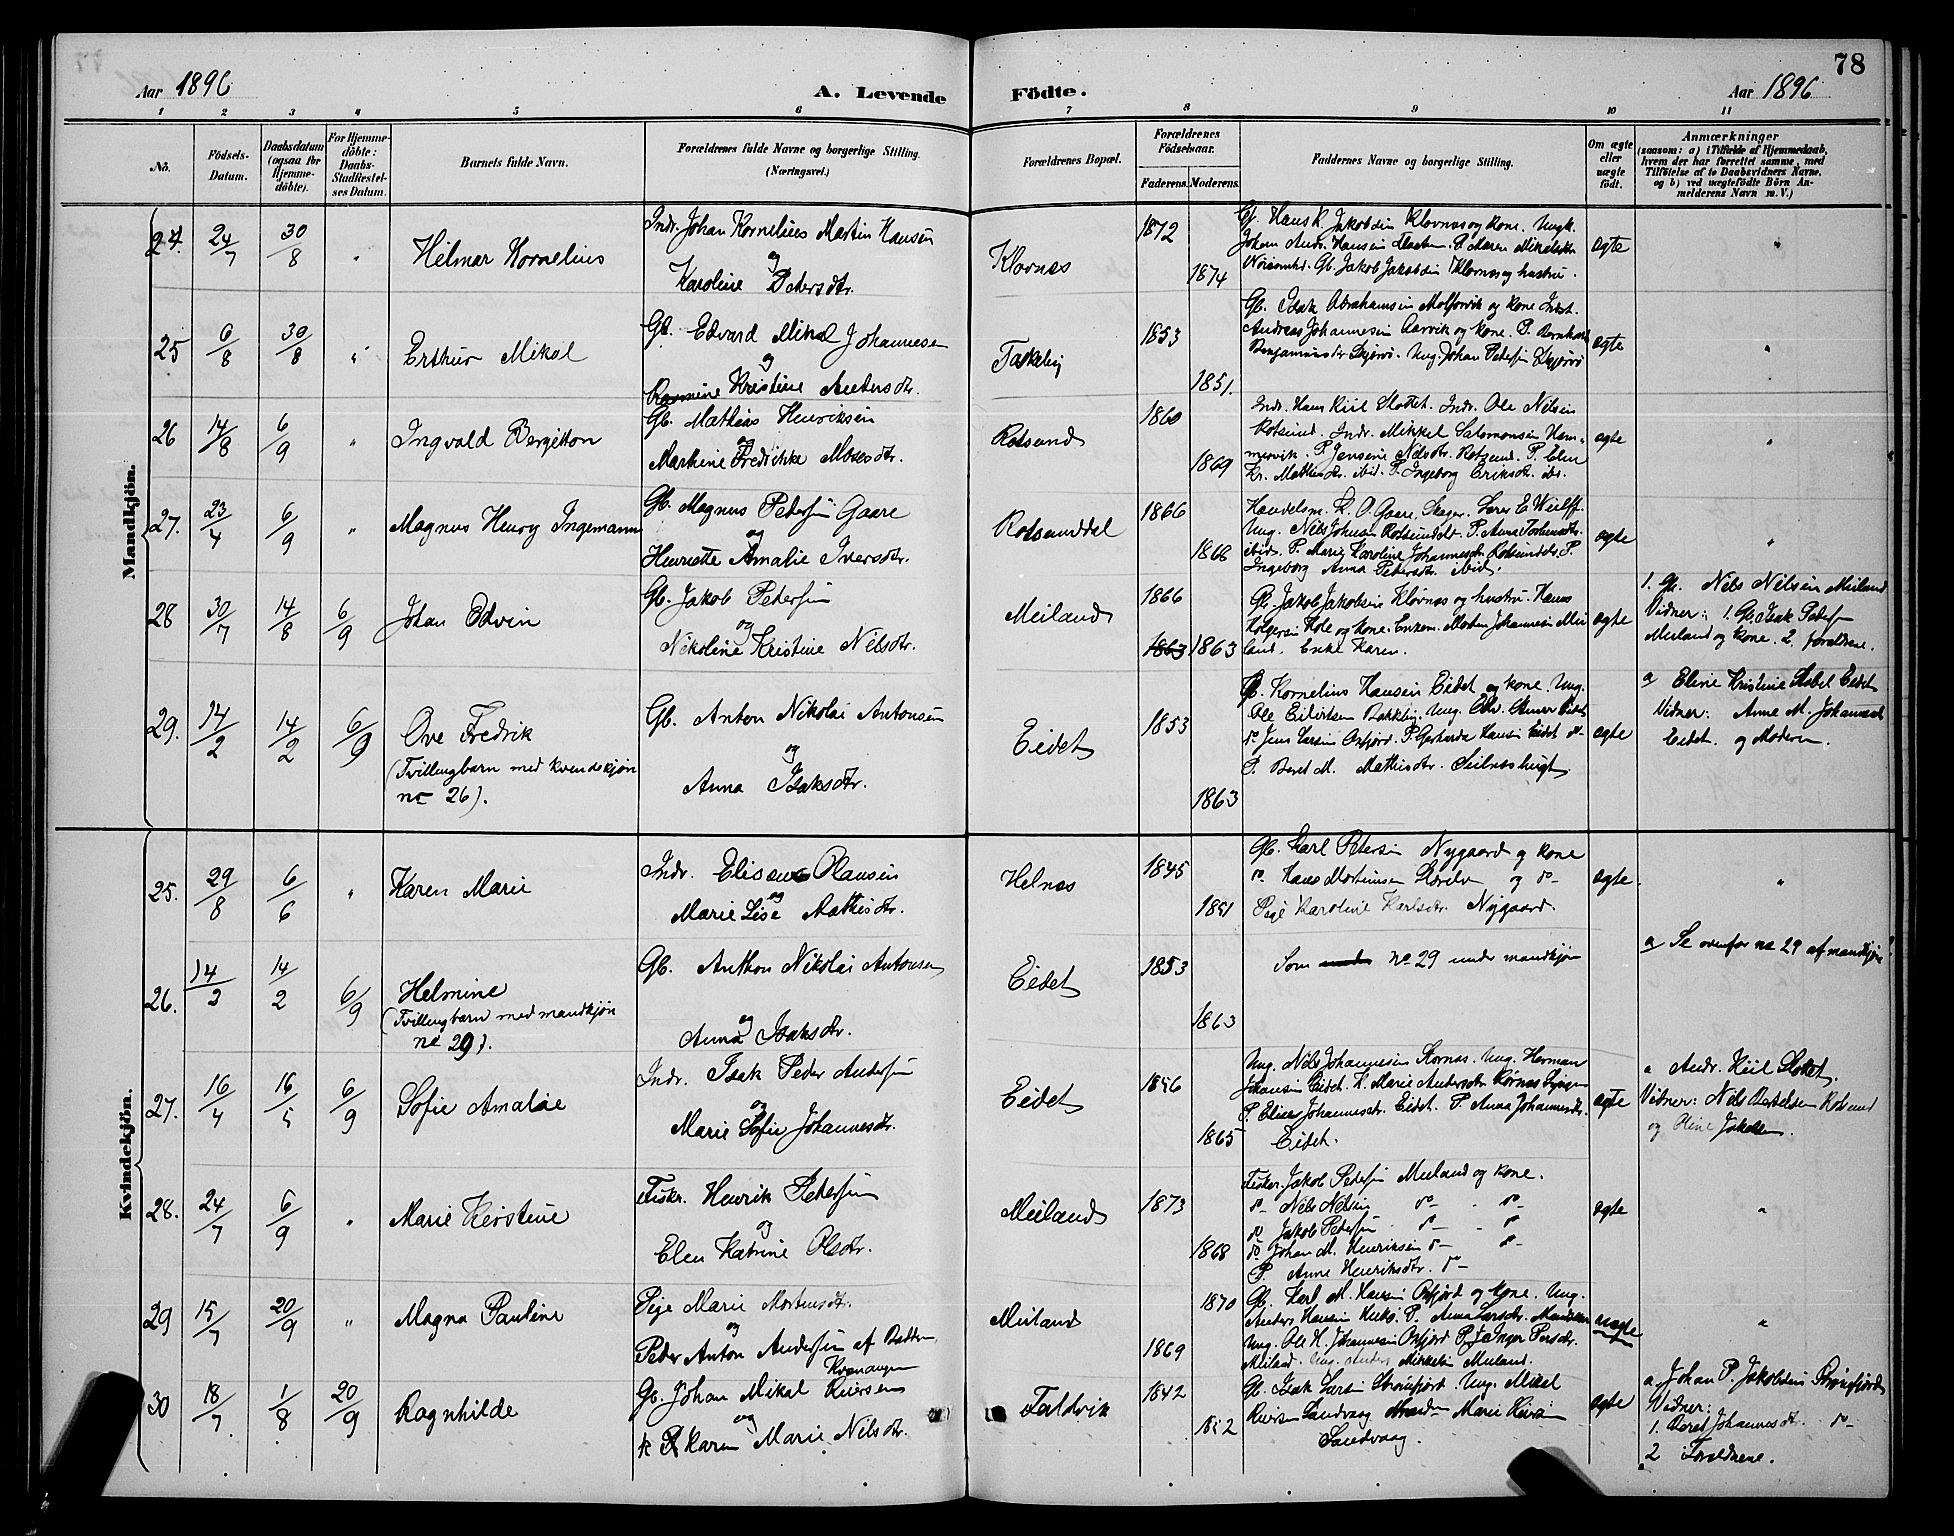 78
Aar 1896
A. Levende Födte.
Aar 1896
1 2 3 4 5 6 7 8 9 10 11
No.
Födsels-
Datum.
Daabsdatum
(ogsaa for
Hjemme-
döbte).
For Hjemme-
döbte:
Daabs-
Stadfæstel-
ses Datum.
Barnets fulde Navn.
Forældrenes fulde Navne og borgerlige Stilling.
(Næringsvei.)
Forældrenes Bopæl.
Forældrenes
Födselsaar.
Faderens. Moderens.
Faddernes Navne og borgerlige Stilling.
Om ægte
eller
uægte
födt.
Anmærkninger
(saasom: a) i Tilfælde af Hjemmedaab,
hvem der har forrettet samme, med
Tilföielse af to Daabsvidners Navne,
og b) ved uægtefödte Börn An-
melderens Navn m. V.)
Mandkjön.
24. 24/7 30/8 " Helmar Kornelius
Indr. Johan Kornelius Martin Hansen
og
Karoline Petersdtr.
Klovnes
1872
1874
Gb. Hans R. Jakobsen Klovnes og kone. Ungk.
Johan Andr. Hansen
Gb. Jakob Jakobsen Klovnes og hustru.
ægte "
25 6/8 30/8 " Erthur Mikal
Gb. Edvard Mikal Johannesen
og
Rasmine Kristine Andersdtr.
Taskeby
1853
1851.
Gb. Isak Abrahamsen og kone Inderst.
Andreas Johannesen Aarvik og kone. P.
Benjaminsdtr Skjærvö. Ung. Johan Pedersen Skjærvö
ægte "
26 14/8 6/9 " Ingvald Bergitton
Gb. Mathias Henriksen
og
Marthine Fredrikke Mosesdtr.
Rotsund
1860
1869
Indr. Hans Kiil Slottet. Indr. Ole Nilsen
Rotsund. Indr. Mikkel Salomonsen Ham-
mervik. P. Jensine Nilsdtr. Rotsund. P. Elen
Kr. Mathisdtr. ibid. P. Ingeborg Eriksdtr. ibd.
ægte "
27. 23/4 6/9 " Magnus Henry Ingemann
Gb. Magnus Pedersen Gaare
og
Henriette Amalie Iversdtr.
Rotsunddal
1866
1868
Handelsm. K. O. Gaare Skager. Lærer E. Wulff.
Ung. Nils Johnsen Rotsunddl. P. Anna Johansdtr.
ibid. P. Marie Karoline Johannesdtr. Rotsunddl. P.
Ingeborg Anna Petersdtr. ibid.
ægte "
28 30/7 14/8 6/9 Johan Edvin
Gb. Jakob Pedersen
og
Nikoline Kristine Nilsdtr.
Meiland
1866
1863 1863
Gb. Jakob Jakobsen Klovnes og hustru. Hans
Holgersen Hole og kone. Enkem. Morten Johannesen Mei
land. Enke Karen.
ægte
1. Gb. Nils Nilsen Meiland
Vidner: 1. Gb. Isak Peders
Meiland og kone. 2. forældrene.
29. 14/2 14/2 6/9 Ove Fredrik
(Tvillingbarn med kvindekjön
no 26).
Gb. Anton Nikolai Antonsen
og
Anna Isaksdtr.
Eidet
1853
1863
Gb. Kornelius Hansen Eidet og kone. Ung.
Ole Eilertsen Bakkeby. Ung. Eidet
do Jens Larsen Oxfjord. P. Gerharda Hansen Eidet do-
P. Beret M. Mathisdtr.
ægte
a Eline Kristine Stabel Eidet
Vidner: Anne M. Johannesd
Eidet. og Moderen.
Kvindekjön.
25. 29/8 6/6 " Karen Marie
Indr. Elisæus Olausen
og
Marie Lise Mathisdtr.
Helnes
1845
1851
Gb. Karl Petersen Nygaard og kone
do. Hans Mortensen Storelv og do-
Pige Karoline Karlsdtr. Nygaard.
ægte. "
26. 14/2 14/2 6/9 Helmine
(Tvillingbarn med mandkjön
no 29).
Gb. Anthon Nikolai Antonsen
og
Anna Isaksdtr.
Eidet
1853
1863
Som no 29 under mandkjön
a Se ovenfor no 29 af mandkjön
27. 16/4 16/5 6/9 Sofie Amalie
Indr. Isak Peder Andersen
og
Marie Sofie Johannesdtr.
Eidet
1856
1865
Ung. Nils Johannesen Stornes. Ung. Herman
Johansen Eidet. K. Marie Andersdtr
P. Elisa Johannesdtr. Eidet. P. Anna Johannesdtr.
Eidet.
ægte
a Andr. Kiil Slottet.
Vidner: Nils Bertelsen Rotsund
og Oline Jakobsen.
28. 24/7 6/9 " Marie Kirstine
Fisker. Henrik Pedersen
og
Elen Katrine Olsdtr.
Meiland
1873
1868
Fisker Jakob Pedersen Meiland og kone.
do- Nils Nilsen do- - do-
do Jakob Pedersen do- - do
do Johan M. Henriksen do- do-
P. Anne Henriksdtr. do-
ægte "
29 15/7 20/9 " Magna Pauline
Pige Marie Mortensdtr.
og
Peder Anton Andersen af
Kvænangen
Meiland
1870
1869
Gb. Karl M. Hansen Oxfjord og kone. Ung.
Anders Hansen P. Anna Larsdtr.
Ung. Ole H. Johannesen Oxfjord P. Inger Persdtr.
Meiland. Ung. Anders Mikkelsen Meiland.
uægte "
30 18/7 1/8 20/9 Ragnhilde
Gb. Johan Mikal Riersen
og
k Karen Marie Nilsdtr.
Faldvik
1842
1852
Gb. Isak Larsen Straumfjord. Ung. Mikal
Riersen Sandvaag Marie Riersen
Sandvaag.
ægte
a. Johan P. Jakobsen
Vidner:
1. Beret Johannesdtr. do-
2 Forældrene.